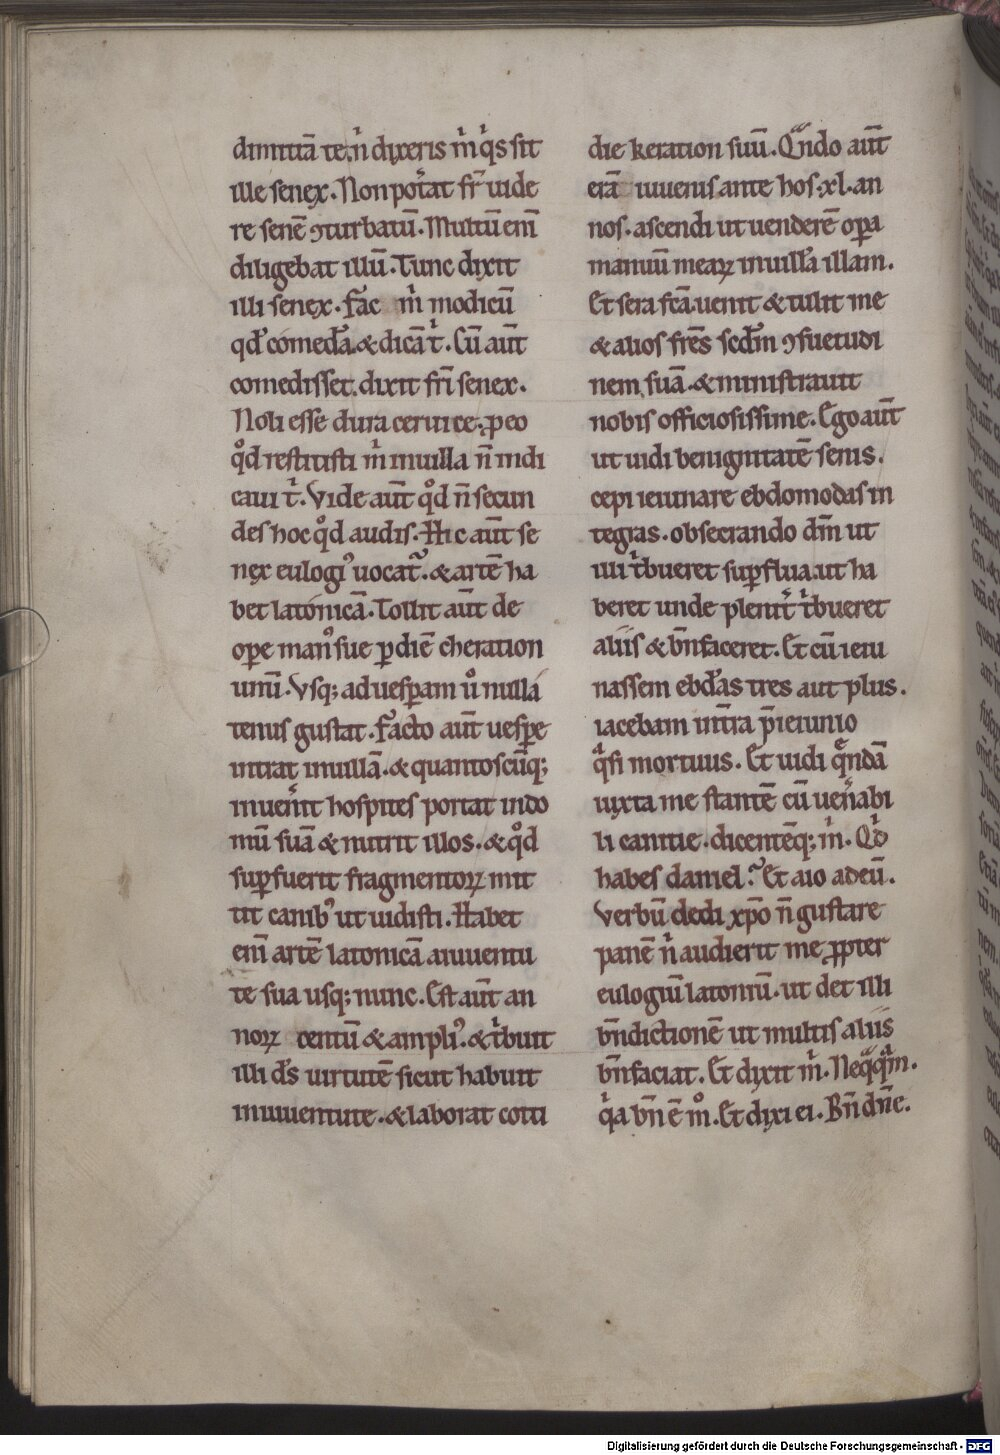 dimittā te. n̄ dixeris m̍ q̍s sit
ille senex. Non pot̍at fr̄ uide
re senē ꝯturbatū. Multū enī
diligebat illū. Tunc dixit
illi senex. Fac m̍ modicū
qđ comedā. & dicā t̍. Cū aūt
comedisset. dixit fr̄i senex.
Noli esse dura ceruice. ꝓ eo
qͦd restitisti m̍ in uilla n̄ indi
caui t̍. Vide aūt qͦd n̄ secun
des hoc qͦd audis. Hic aūt se
nex eulogiꝰ uocat᷑. & artē ha
bet latonicā. Tollit aūt de
oꝑe manꝰ sue ꝑ diē cheration
unū. Vsq; ad uesꝑam uͦ nulla
tenus gustat. Facto aūt uesꝑe
intrat in uillā. & quantoscūq;
inuen̍it hospites portat in do
mū suā & nutrit illos. & qͦd
suꝑfuerit fragmentoꝝ mit
tit canibꝰ ut uidisti. Habet
enī artē latonicā a iuuentu
te sua usq; nunc. Est aūt an
noꝝ centū & ampliꝰ. & t̍buit
illi d̄s uirtutē sicut habuit
in iuuentute. & laborat coti
die keration suū. Qᵃndo aūt
erā iuuenis ante hos .xl. an
nos. ascendi ut uenderē oꝑa
manuū meaꝝ in uilla illam.
Et sera fc̄a. uenit & tulit me
& alios fr̄es scđm ꝯsuetudi
nem suā. & ministrauit
nobis officiosissime. Ego aūt
ut uidi benignitatē senis.
cepi ieiunare ebdomodas in
tegras. obsecrando dn̄m ut
illi t̍bueret suꝑflua. ut ha
beret unde pleni᷑ t̍bueret
aliis & bn̄faceret. Et cū ieiu
nassem ebđas tres aut plus.
iacebam int̄ra p̄ ieiunio
qᵃsi mortuus. Et uidi qᵉndā
iuxta me stantē cū uen̍abi
li canitie. dicentēq; m̍. Qͥd
habes daniel? Et aio ad eū.
Verbū dedi xp̄o n̄ gustare
panē n̍ audierit me ꝓpter
eulogiū latoniū. ut det illi
bn̄dictionē ut multis aliis
bn̄faciat. Et dixit m̍. Neqᵃqᵃm.
qͥa bn̄ ē mͦ. Et dixi ei. Bn̄ dn̄e.
Digitalisierung gefördert durch die Deutsche Forschungsgemeinschaft - DFG